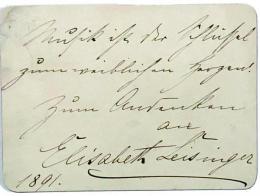 Musik ist der Schlüssel
zum weiblichen Herzen!
Zum Andenken
an
Elisabeth Leisinger
1891.